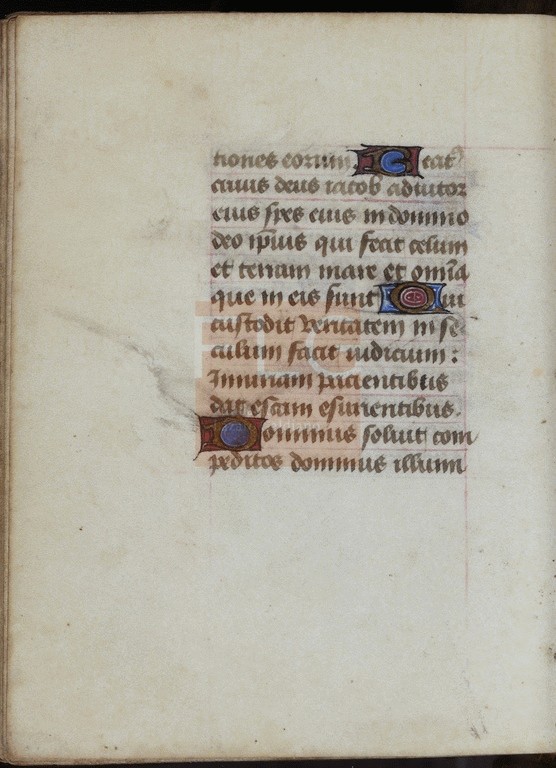 tiones eorum. Beat9
cuius deus iacob adiutor
eius spes eius in domino
deo ipsius qui fecit celum
et terram mare et omīa
que in eis sunt Qui
custodit veritatem in se
culum facit iudicium :
Iniuriam pacientibus
dat escam esurientibus.
Dominus soluit com
peditos dominus illumi
FLG